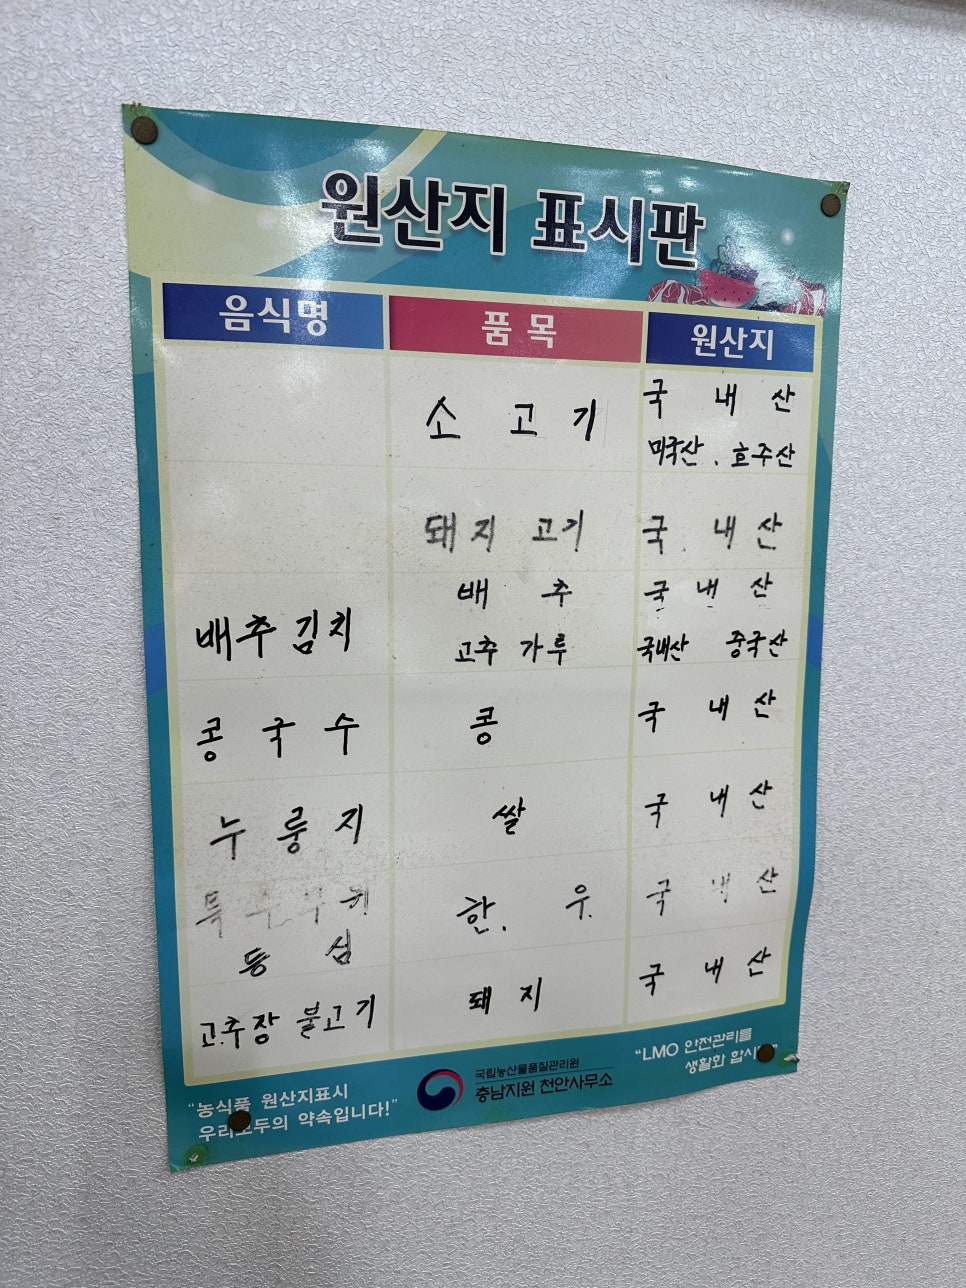 원산지 표시판
음식명 품 목 원산지
소 고 기 국 내 산
미국산 . 호주산
돼지 고기 국 내 산
배추김치 배 추 국 내 산
고추 가루 국내산 중국산
콩 국 수 콩 국 내 산
누 룽 지 쌀 국 내 산
특수부위 한. 우. 국 내 산
등 심
고추장 불고기 돼 지 국 내 산
"농식품 원산지표시
우리모두의 약속입니다!"
국립농산물품질관리원
충남지원 천안사무소
"LMO 안전관리를
생활화 합시